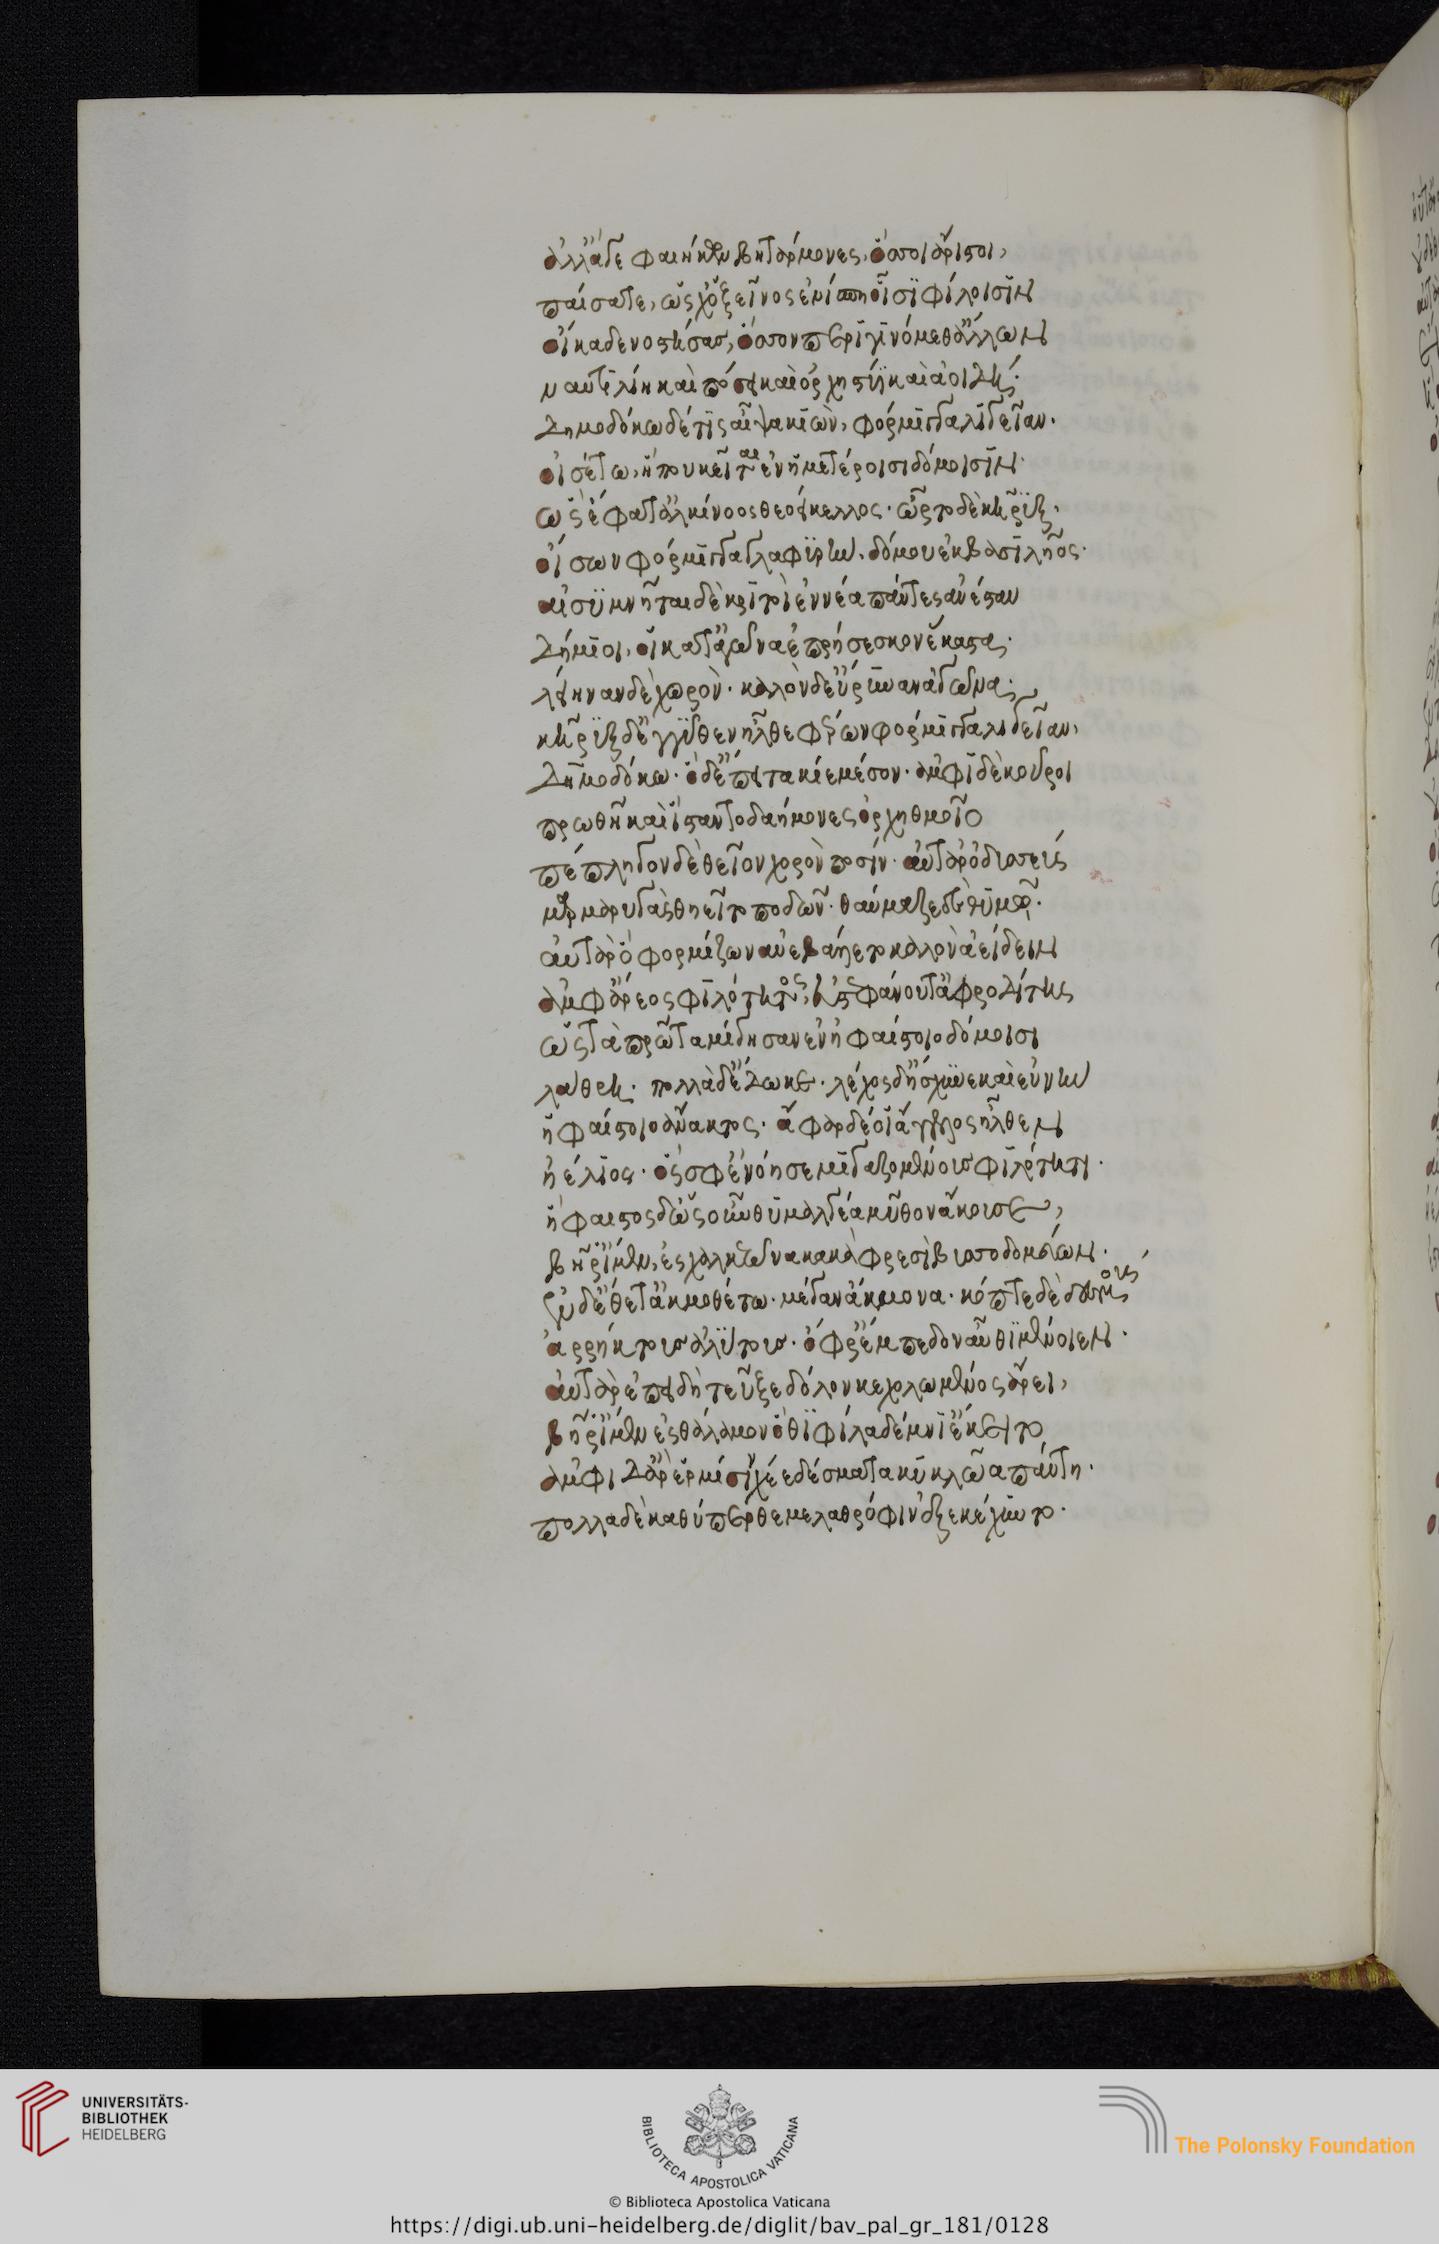 ἀλλ' ἄγε φαιήκων βητάρμονες ὅσσοι ἄριστοι,
παίσατε, ὥς χ' ὁ ξεῖνος ἐνίσπη οἷσι φίλοισιν
οἴκαδε νοστήσας, ὅσσον περιγινόμεθ' ἄλλων
ναυτιλίη καὶ ποσσὶ καὶ ὀρχηστυῖ καὶ ἀοιδῇ.
δημοδόκω δέ τις αἶψα κιὼν, φόρμιγγα λίγειαν.
οἰσέτω, ἥ που κεῖται ἐν ἡμετέροισι δόμοισιν.
ὣς ἔφατ' ἀλκίνοος θεοείκελος. ὦρτο δὲ κῆρυξ,
οἴσων φόρμιγγα γλαφυρὴν, δόμου ἐκ βασιλῆος.
αἰσυμνῆται δὲ κριτοὶ ἐννέα πάντες ἀνέσταν
δήμιοι, οἳ κατ' ἀγῶνα ἐπρήσεσκον ἕκαστα.
λείηναν δὲ χορὸν. καλὸν δ' εὔρυναν ἀγῶνα.
κῆρυξ δ' ἐγγύθεν ἦλθε φέρων φόρμιγγα λίγειαν,
δημοδόκω. ὁ δ' ἔπειτα κίε μέσον. ἀμφὶ δὲ κοῦροι
πρωθῆβαι ἵσταντο δαήμονες ὀρχηθμοῖο
πέπληγον δὲ θεῖον χορὸν ποσίν. αὐτὰρ ὀδυσσεὺς
μαρμαρυγὰς θηεῖτο ποδῶν. θαύμαζε δὲ θυμῷ.
αὐτὰρ ὁ φορμίζων ἀνεβάλλετο καλὸν ἀείδειν
ἀμφ' ἄρεος φιλότητος, ἐϋστεφάνου τ' ἀφροδίτης
ὡς τὰ πρῶτα μίγησαν ἐν ἡφαίστοιο δόμοισι
λάθρη. πολλὰ δ' ἔδωκε. λέχος δ' ἤσχυνε καὶ εὐνὴν
ἡφαίστοιο ἄνακτος. ἄφαρ δέ οἱ ἄγγελος ἦλθεν
ἠέλιος. ὅς σφ' ἐνόησε μιγαζομένους φιλότητι.
ἥφαιστος δ' ὡς οὖν θυμαλγέα μῦθον ἄκουσε,
βῆ ῥ' ἴμεν ἐς χαλκεῶνα κακὰ φρεσὶ βυσσοδομεύων.
ἐν δ' ἔθετ' ἀκμοθέτω μέγαν ἄκμονα. κόπτε δὲ δεσμοὺς
ἀρρήκτους ἀλύτους. ὄφρ' ἔμπεδον αὖθι μένοιεν.
αὐτὰρ ἐπειδὴ τεῦξε δόλον κεχολωμένος ἄρει,
βῆ ῥ' ἴμεν ἐς θάλαμον ὅθι φίλα δέμνι' ἔκειτο
ἀμφὶ δ' ἄρ' ἑρμῖσι χέε δέσματα κύκλω ἁπάντη.
πολλὰ δὲ καθύπερθε μελαθρόφιν ἐξεκέχυντο.
UNIVERSITÄTS-
BIBLIOTHEK
HEIDELBERG
BIBLIOTECA APOSTOLICA VATICANA
The Polonsky Foundation
© Biblioteca Apostolica Vaticana
https://digi.ub.uni-heidelberg.de/diglit/bav_pal_gr_181/0128